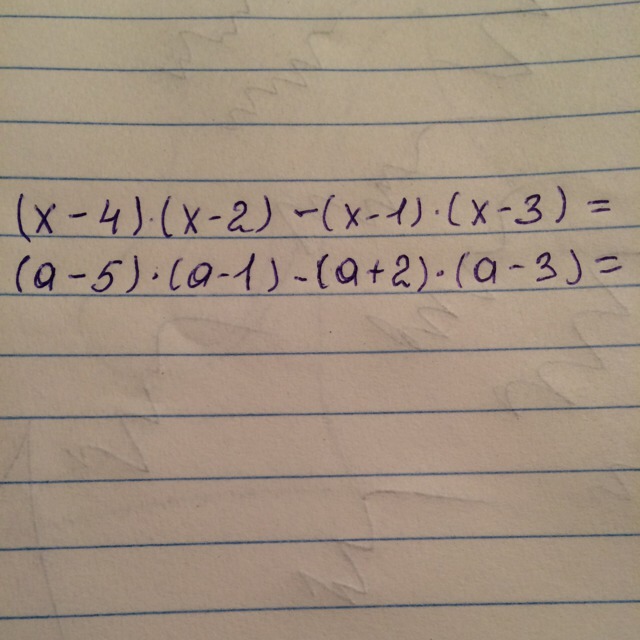 (x-4)·(x-2) -(x-1)·(x-3) =
(a-5)·(a-1)-(a+2)·(a-3)=